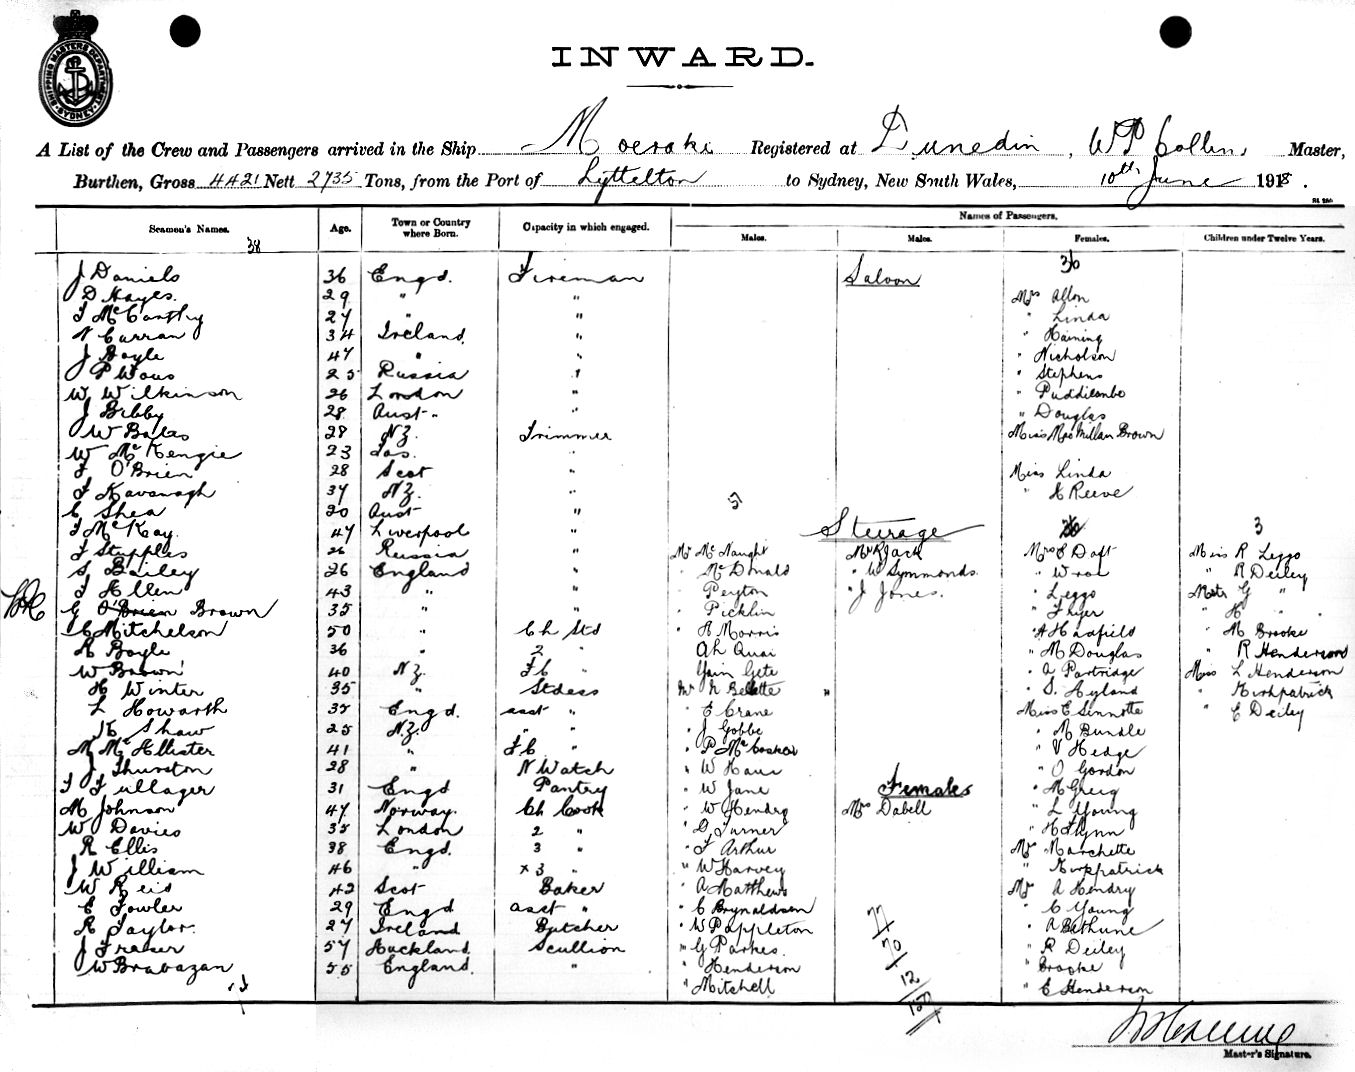 SHIPPING MASTERS DEPARTMENT SYDNEY
INWARD.
A List of the Crew and Passengers arrived in the Ship Moeraki Registered at Dunedin, W P Collins Master,
Burthen, Gross 4421 Nett 2735 Tons, from the Port of Lyttelton to Sydney, New South Wales, 10th June 1918.
Names of Passengers.
Seamen's Names. Age. Town or Country where Born. Capacity in which engaged. Males. Males. Females. Children under Twelve Years.
38
J Daniels 36 Engd. Fireman
D Hayes. 29 " "
J McCarthy 27 " "
Curran 34 Ireland "
J Doyle 47 " "
P 25 Russia "
W Wilkinson 26 London "
J Bibby 28 Aust "
W Bates 28 NZ. Trimmer
W McKenzie 23 Tas. "
F O'Brien 28 Scot "
F Kavanagh 37 NZ. "
C Shea 20 Aust "
J McKay. 47 Liverpool "
F Stepples 26 Russia "
S Bailey 26 England "
J Allen 43 " "
G O'Brien Brown 35 " "
C Mitchelson 50 " Ch Std
R Boyle 36 " 2 "
W Brown 40 NZ. FC "
H Winter 35 " Stdess
L Howarth 35 Engd. asst "
Shaw 25 NZ. " "
N McAllister 41 " FC "
J Thurston 28 " N Watch
T Fullager 31 Engd Pantry
M Johnson 47 Norway. Ch Cook
W Davies 35 London 2 "
R Ellis 38 Engd. 3 "
J William 46 " x 3 "
W Reid 42 Scot Baker
C Fowler 29 Engd asst "
R Taylor. 27 Ireland Butcher
J Fraser 57 Auckland Scullion
W Brabazan 55 England. "
Saloon
36
Mrs Allon
" Linda
" Haining
" Nicholson
" Stephens
" Puddicombe
" Douglas
Miss MacMillan Brown
Miss Linda
" Reeve
Steerage
Mr McNaught
" McDonald
" Peyton
" Picklin
" A Morris
Ah Quai
Yain Gete
Mr N
" E Crane
" J Gobbe
" P McCosker
" W Haus
" W Jane
" W Hendry
" G Turner
" F Arthur
" W Harvey
" A Matthews
" C Brynaldson
" W Pappleton
" G Parkes.
" Henderson
" Mitchell
Mr R Jack
" W Symmonds.
" J Jones.
Females
Mrs Dabell
77
70
12
159
Mrs E Daft
" Wroe
" Leggo
" Fryer
" A Hadfield
" M Douglas
" A Partridge
" S. Hyland
Miss E Sinnotte
" M Bundle
" V Hedge
" O Gordon
" M Greig
" L Young
" H Flynn
Mrs Marchette
" Kirkpatrick
Mrs A Hendry
" C Young
" A Bethune
" R Deiley
" Brooke
" E Henderson
3
Miss R Leggo
" R Deiley
Mstr G "
" H "
" M Brooke
" R Henderson
Miss L Henderson
" Kirkpatrick
" E Deiley
Master's Signature.